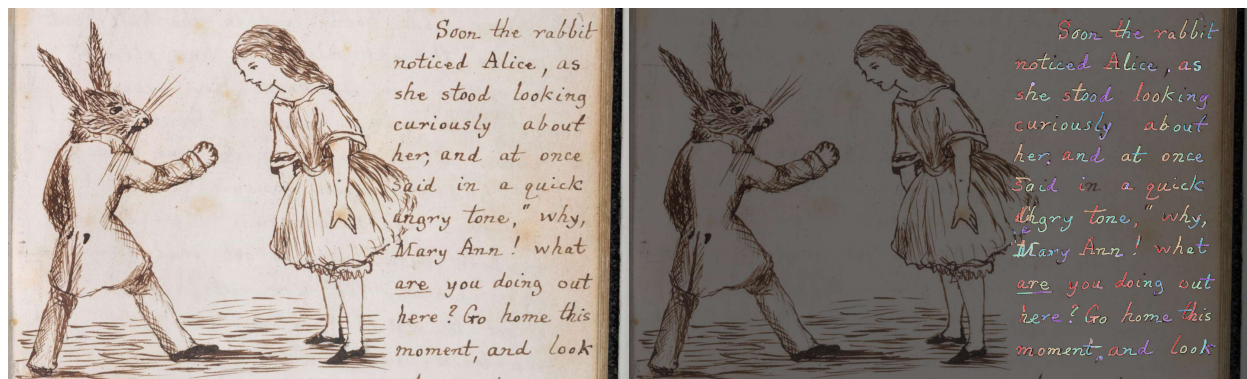 Soon the rabbit
noticed Alice, as
she stood looking
curiously about
her, and at once
said in a quick
angry tone, " why,
Mary Ann! what
are you doing out
here? Go home this
moment, and look
Soon the rabbit
noticed Alice, as
she stood looking
curiously about
her, and at once
said in a quick
angry tone, " why,
Mary Ann! what
are you doing out
here? Go home this
moment, and look